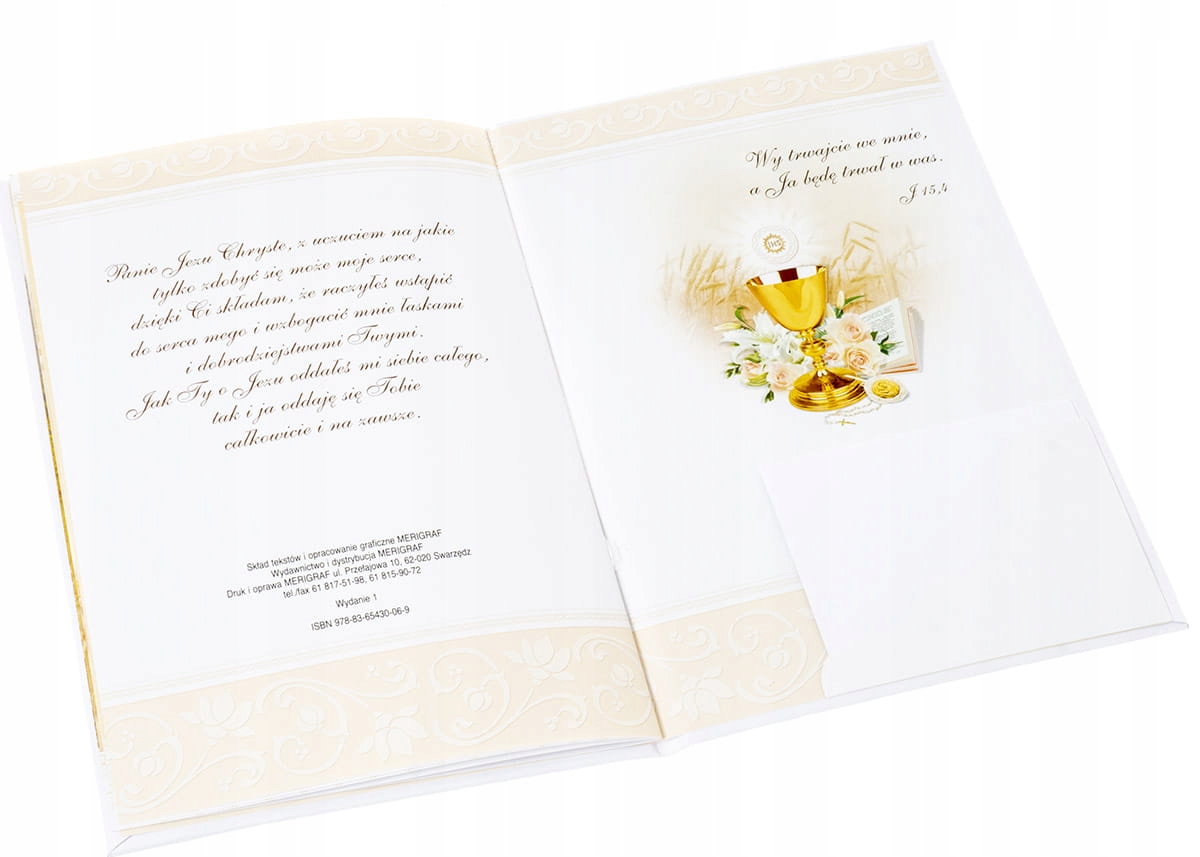 Panie Jezu Chryste, z uczuciem na jakie
tylko zdobyć się może moje serce,
dzięki Ci składam, że raczyłeś wstąpić
do serca mego i wzbogacić mnie łaskami
i dobrodziejstwami Twymi.
Jak Ty o Jezu oddałeś mi siebie całego,
tak i ja oddaję się Tobie
całkowicie i na zawsze.
Skład tekstów i opracowanie graficzne MERIGRAF
Wydawnictwo i dystrybucja MERIGRAF
Druk i oprawa MERIGRAF ul. Przełajowa 10, 62-020 Swarzędz
tel./fax 61 817-51-98, 61 815-90-72
Wydanie 1
ISBN 978-83-65430-06-9
Wy trwajcie we mnie,
a Ja będę trwał w was.
J 15,4
IHS